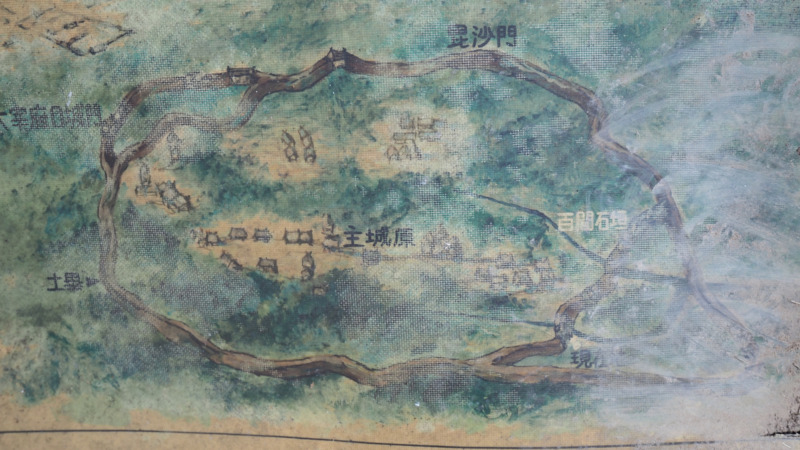 毘沙門
大宰府口城門
百間石垣
主城原
土塁
現在